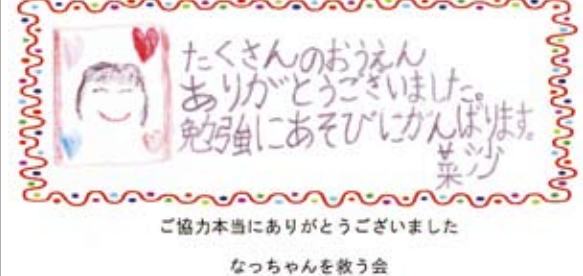 たくさんのおうえん
ありがとうございました。
勉強にあそびにがんばります。
菜沙
ご協力本当にありがとうございました
なっちゃんを救う会